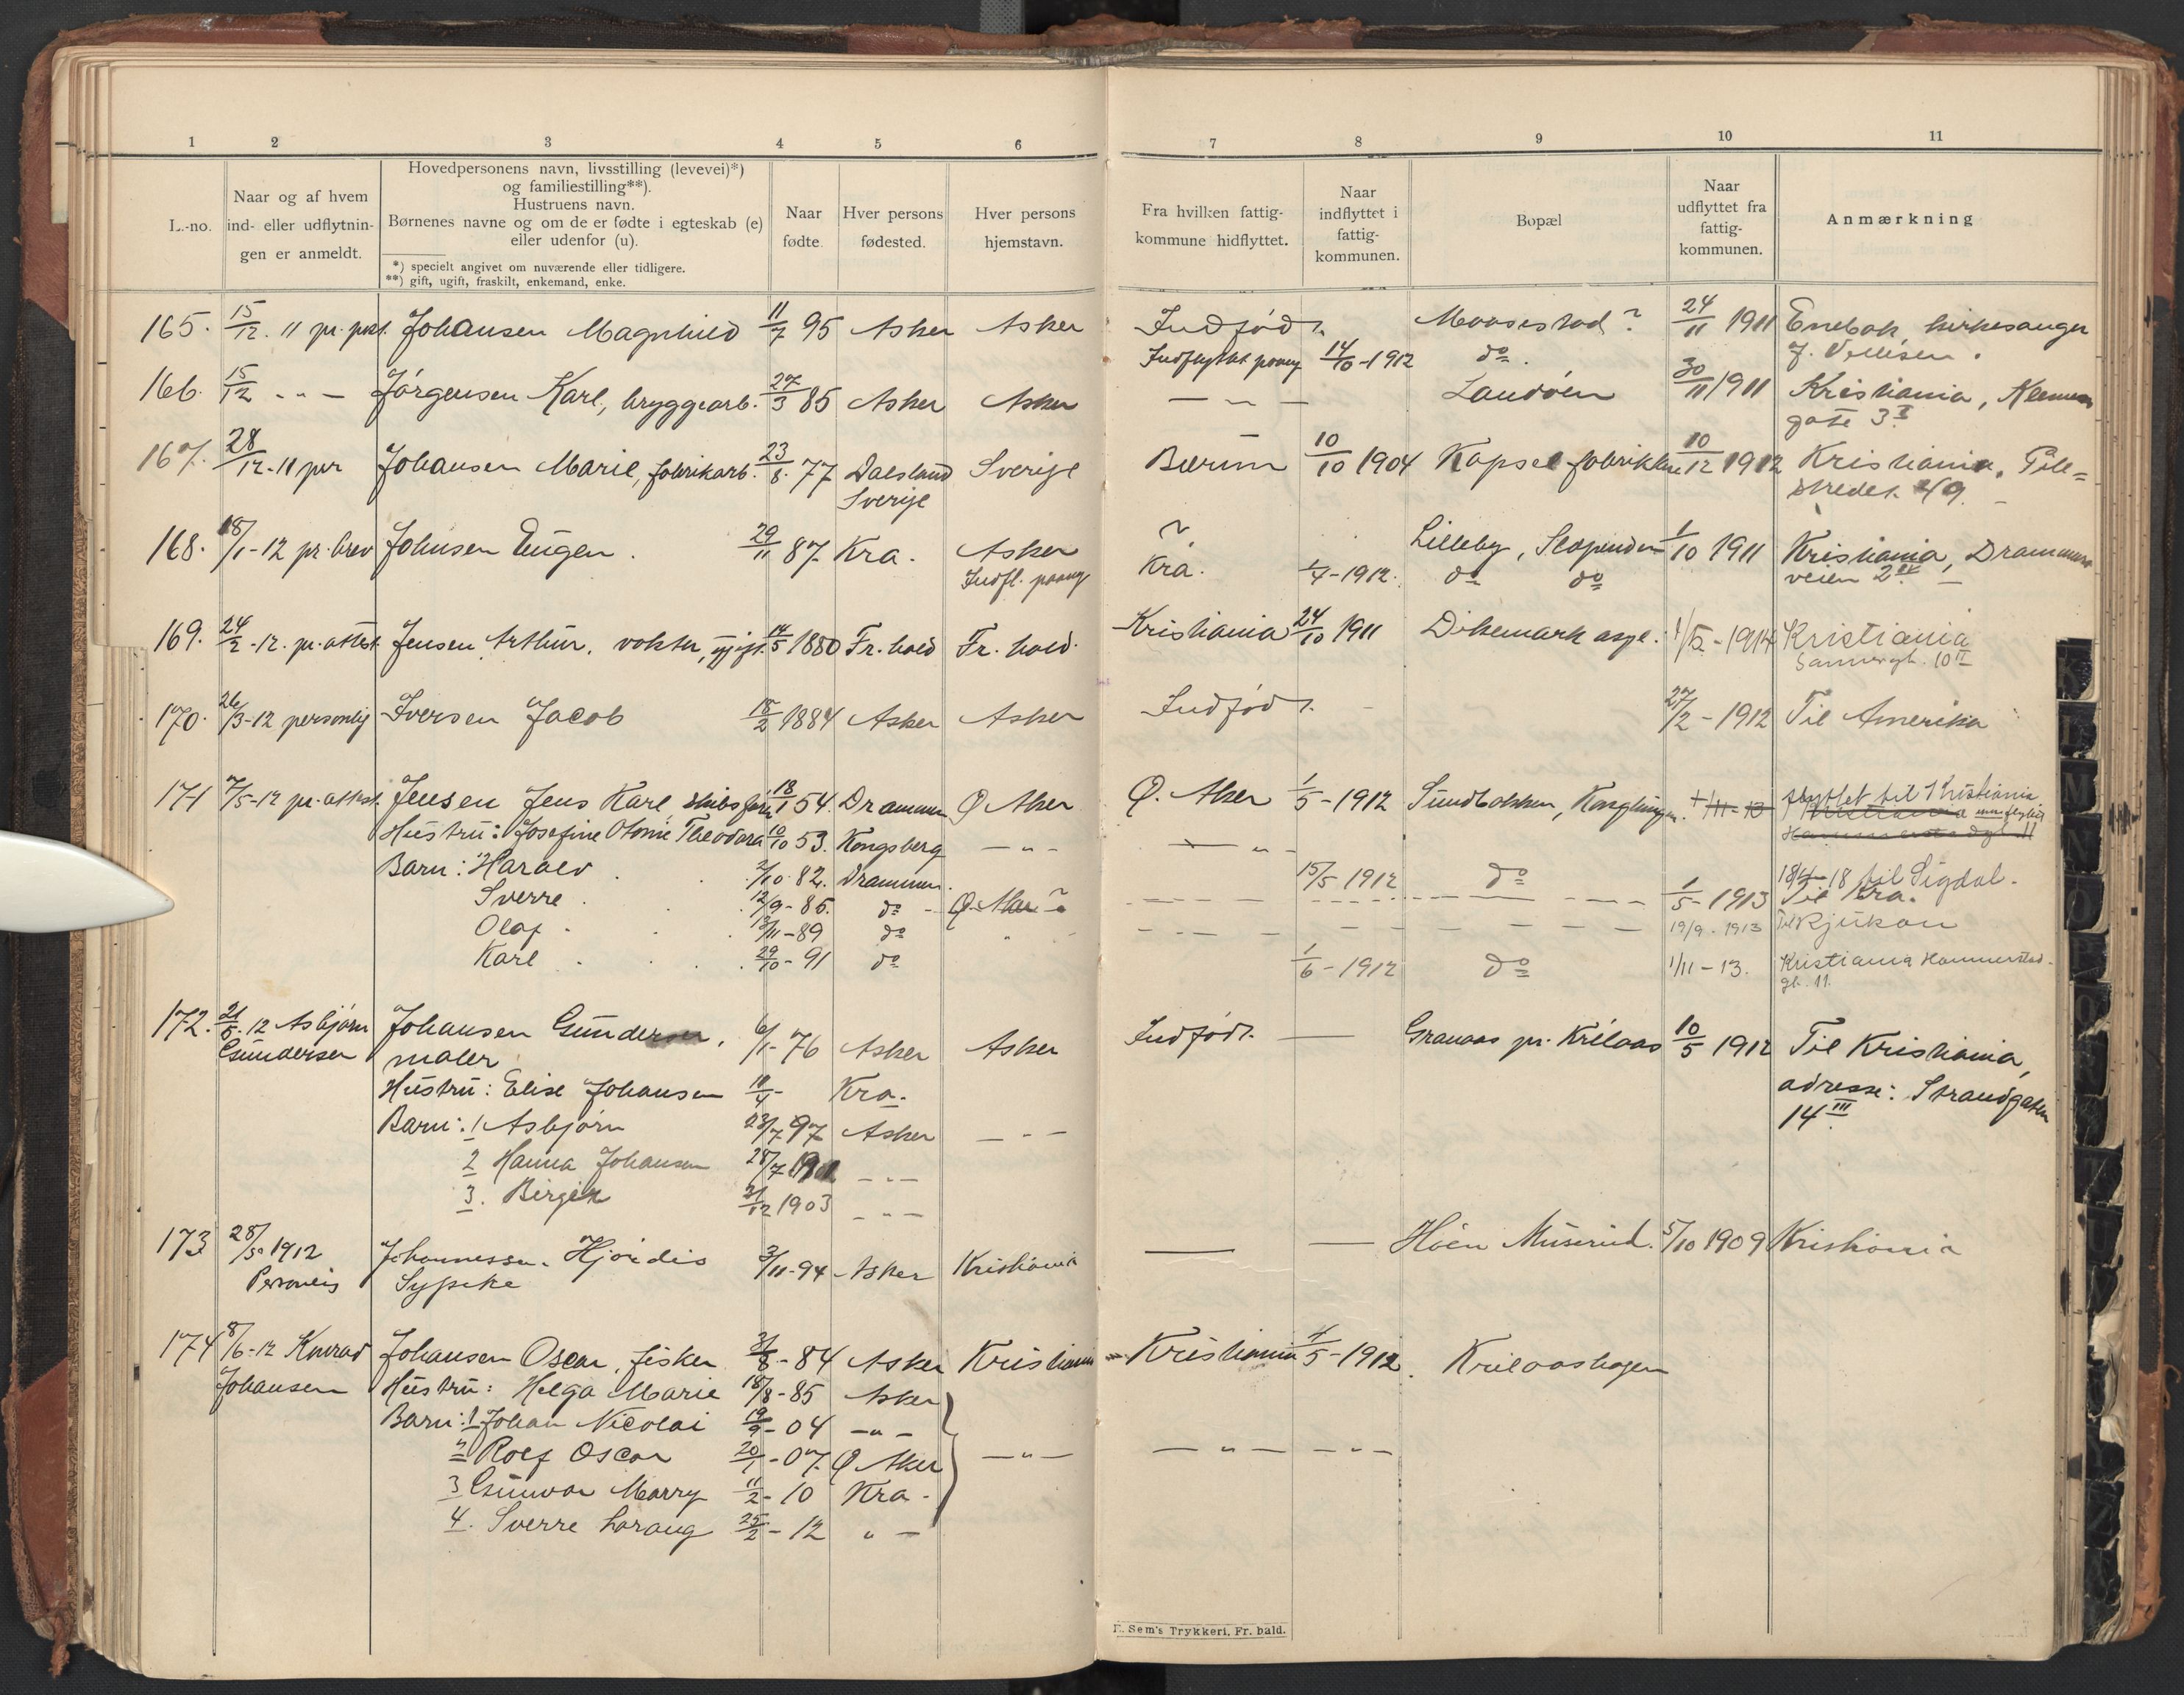 1 2 3 4 5 6 7 8 9 10 11
L.-no.
Naar og af hvem
ind- eller udflytnin-
gen er anmeldt.
Hovedpersonens navn, livsstilling (levevei)*)
og familiestilling**).
Hustruens navn.
Børnenes navne og om de er fødte i egteskab (e)
eller udenfor (u).
*) specielt angivet om nuværende eller tidligere.
**) gift, ugift, fraskilt, enkemand, enke.
Naar
fødte.
Hver persons
fødested.
Hver persons
hjemstavn.
Fra hvilken fattig-
kommune hidflyttet.
Naar
indflyttet i
fattig-
kommunen.
Bopæl
Naar
udflyttet fra
fattig-
kommunen.
Anmærkning
165. 15/12. 11 pr. post. Johansen Magnhild 11/7 95 Asker Asker Indfødt. ? 24/11 1911 Enebak kirkesanger
Indflyttet paany 14/10-1912 do. J.
166. 15/12 - " - Jørgensen Karl, bryggearb. 27/3 85 Asker Asker - " - Landøen 30/11 1911 Kristiania,
gate 3 I
167. 28/12-11 per Johansen Marie, fabrikarb. 23/8 77 Dalsland Sverige Bærum 10/10 1904 Kapselfabrikken 10/12 1912 Kristiania, Pile=
Sverige stredet 49.
168. 18/1-12 pr. brev Johnsen Eugen. 29/11 87 Kra. Asker ? Lilleby, Slependen 1/10 1911 Kristiania, Drammens
Indfl. paany Kra. 1/4-1912. do do veien 2
169. 24/2-12. pr. attest Jensen Arthur, vokter, ugift. 14/5 1880 Fr.hald Fr.hald. Kristiania 24/10 1911 Dikemark asyl. 1/5-1914 Kristiania
Sannergt. 10 II
170. 26/3-12 personlig Iversen Jacob 18/2 1884 Asker Asker Indfødt. 27/2-1912 Til Amerika
171 7/5-12 pr. attest. Jensen Jens Karl skibsfører 18/1 54. Drammen Ø Aker Ø. Aker 1/5-1912 Sundbakken, Konglungen. 1/11-13 flyttet til Kristiania
Kristiania
Hustru: Josefine Otomie Theodora 10/10 53. Kongsberg - " - - " -
Barn: Harald 2/10 82. Drammen. 15/5 1912 do 18/4-18 til Sigdal.
Sverre 12/9-85. do Ø. Aker ? 1/5-1913 Til Kra.
Olaf 13/11-89 do 19/9-1913 Til Rjukan
Karl 29/10-91 do 1/6-1912 do 1/11-13. Kristiania Hammerstad-
gt. 11.
172. 21/5.12 Asbjørn Johansen Gundersen, 6/1-76 Asker Asker Indfødt. — Granaas pr. Krilaas 10/5 1912 Til Kristiania,
Gundersen maler adresse: Strandgaten
Hustru: Elise Johansen 18/4- Kra. 14 III.
Barn: 1 Asbjørn 23/7 97 Asker - " -
2 Hanna Johansen 28/7 1901 - " -
3. Birger 21/12 1903 - " -
173 28/5 1912 Johannessen Hjørdis 3/11-94 Asker Kristiania — — Høen Muserud. 5/10 1909 Kristiania
Personlig Sypike
174 8/6-12 Konrad Johansen Oscar, fisker 21/8-84 Asker Kristiania Kristiania 1/5-1912. Krilaashagen
Johansen Hustru: Helga Marie 18/8-85 Asker
Barn: 1 Johan Nicolai 19/9-04 - " -
2 Rolf Oscar 20/1-07 Ø Aker - " - - " - - " -
3 Gunvor Marry 11/2-10 Kra.
4. Sverre 25/2-12 " -
E. Sem's Trykkeri, Fr. hald.